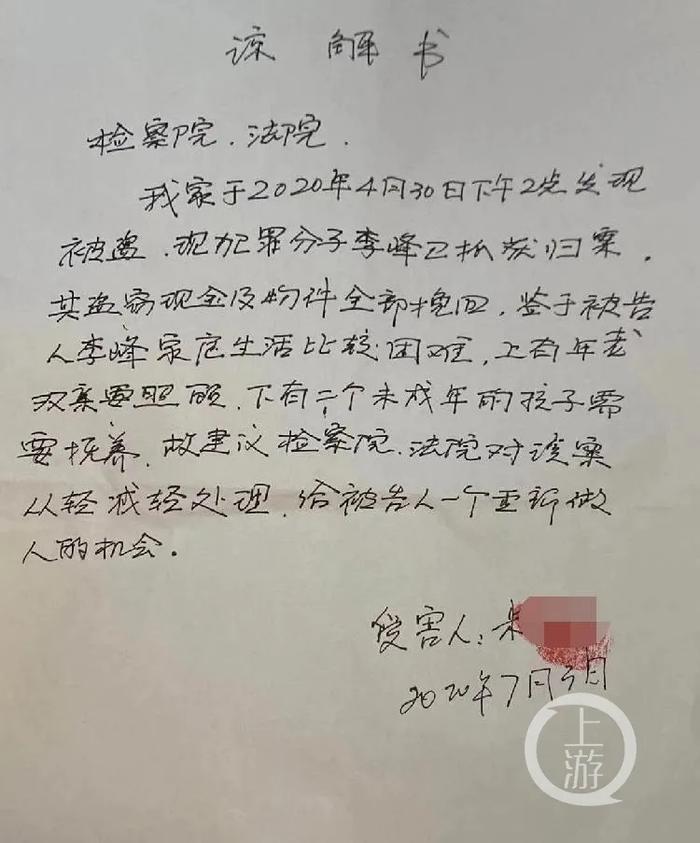 谅解书
检察院、法院、
我家于2020年4月30日下午2点发现
被盗、现犯罪分子李峰已抓获归案、
其盗窃现金及物件全部挽回、鉴于被告
人李峰家庭生活比较困难、上有年老
双亲要照顾、下有二个未成年的孩子需
要抚养、故建议检察院、法院对该案
从轻减轻处理、给被告人一个重新做
人的机会。
受害人：朱
2020年7月3日
上游